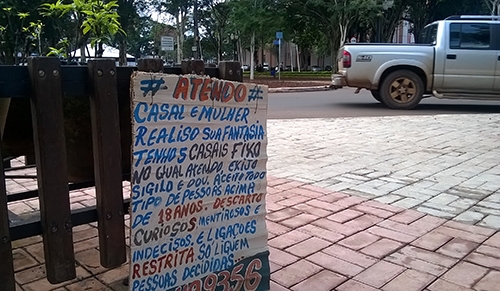 # ATENDO #
CASAL E MULHER
REALISO SUA FANTASIA
TENHO 5 CASAIS FIXO
NO QUAL ATENDO, EXIJO
SIGILO E DOU, ACEITO TODO
TIPO DE PESSOAS ACIMA
DE 18 ANOS. DESCARTO
CURIOSOS MENTIROSOS E
INDECISOS, E LIGAÇÕES
RESTRITA SÓ LIGUEM
PESSOAS DECIDIDAS...
9356